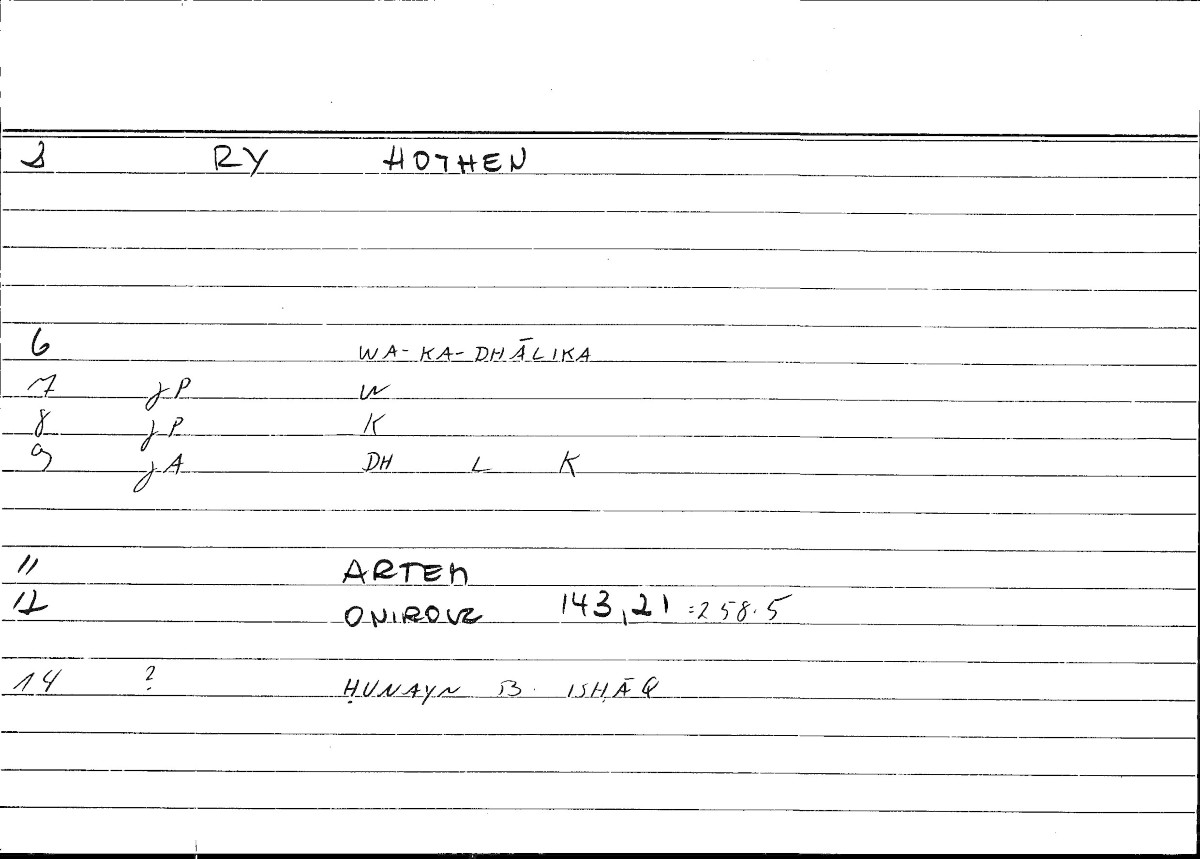 3 RY HOTHEN
6 WA-KA-DHĀLIKA
7 JP W
8 JP K
9 JA DH L K
11 ARTEM
12 ONIROCR 143,21 =258.5
14 ? ḤUNAYN B. ISḤĀQ